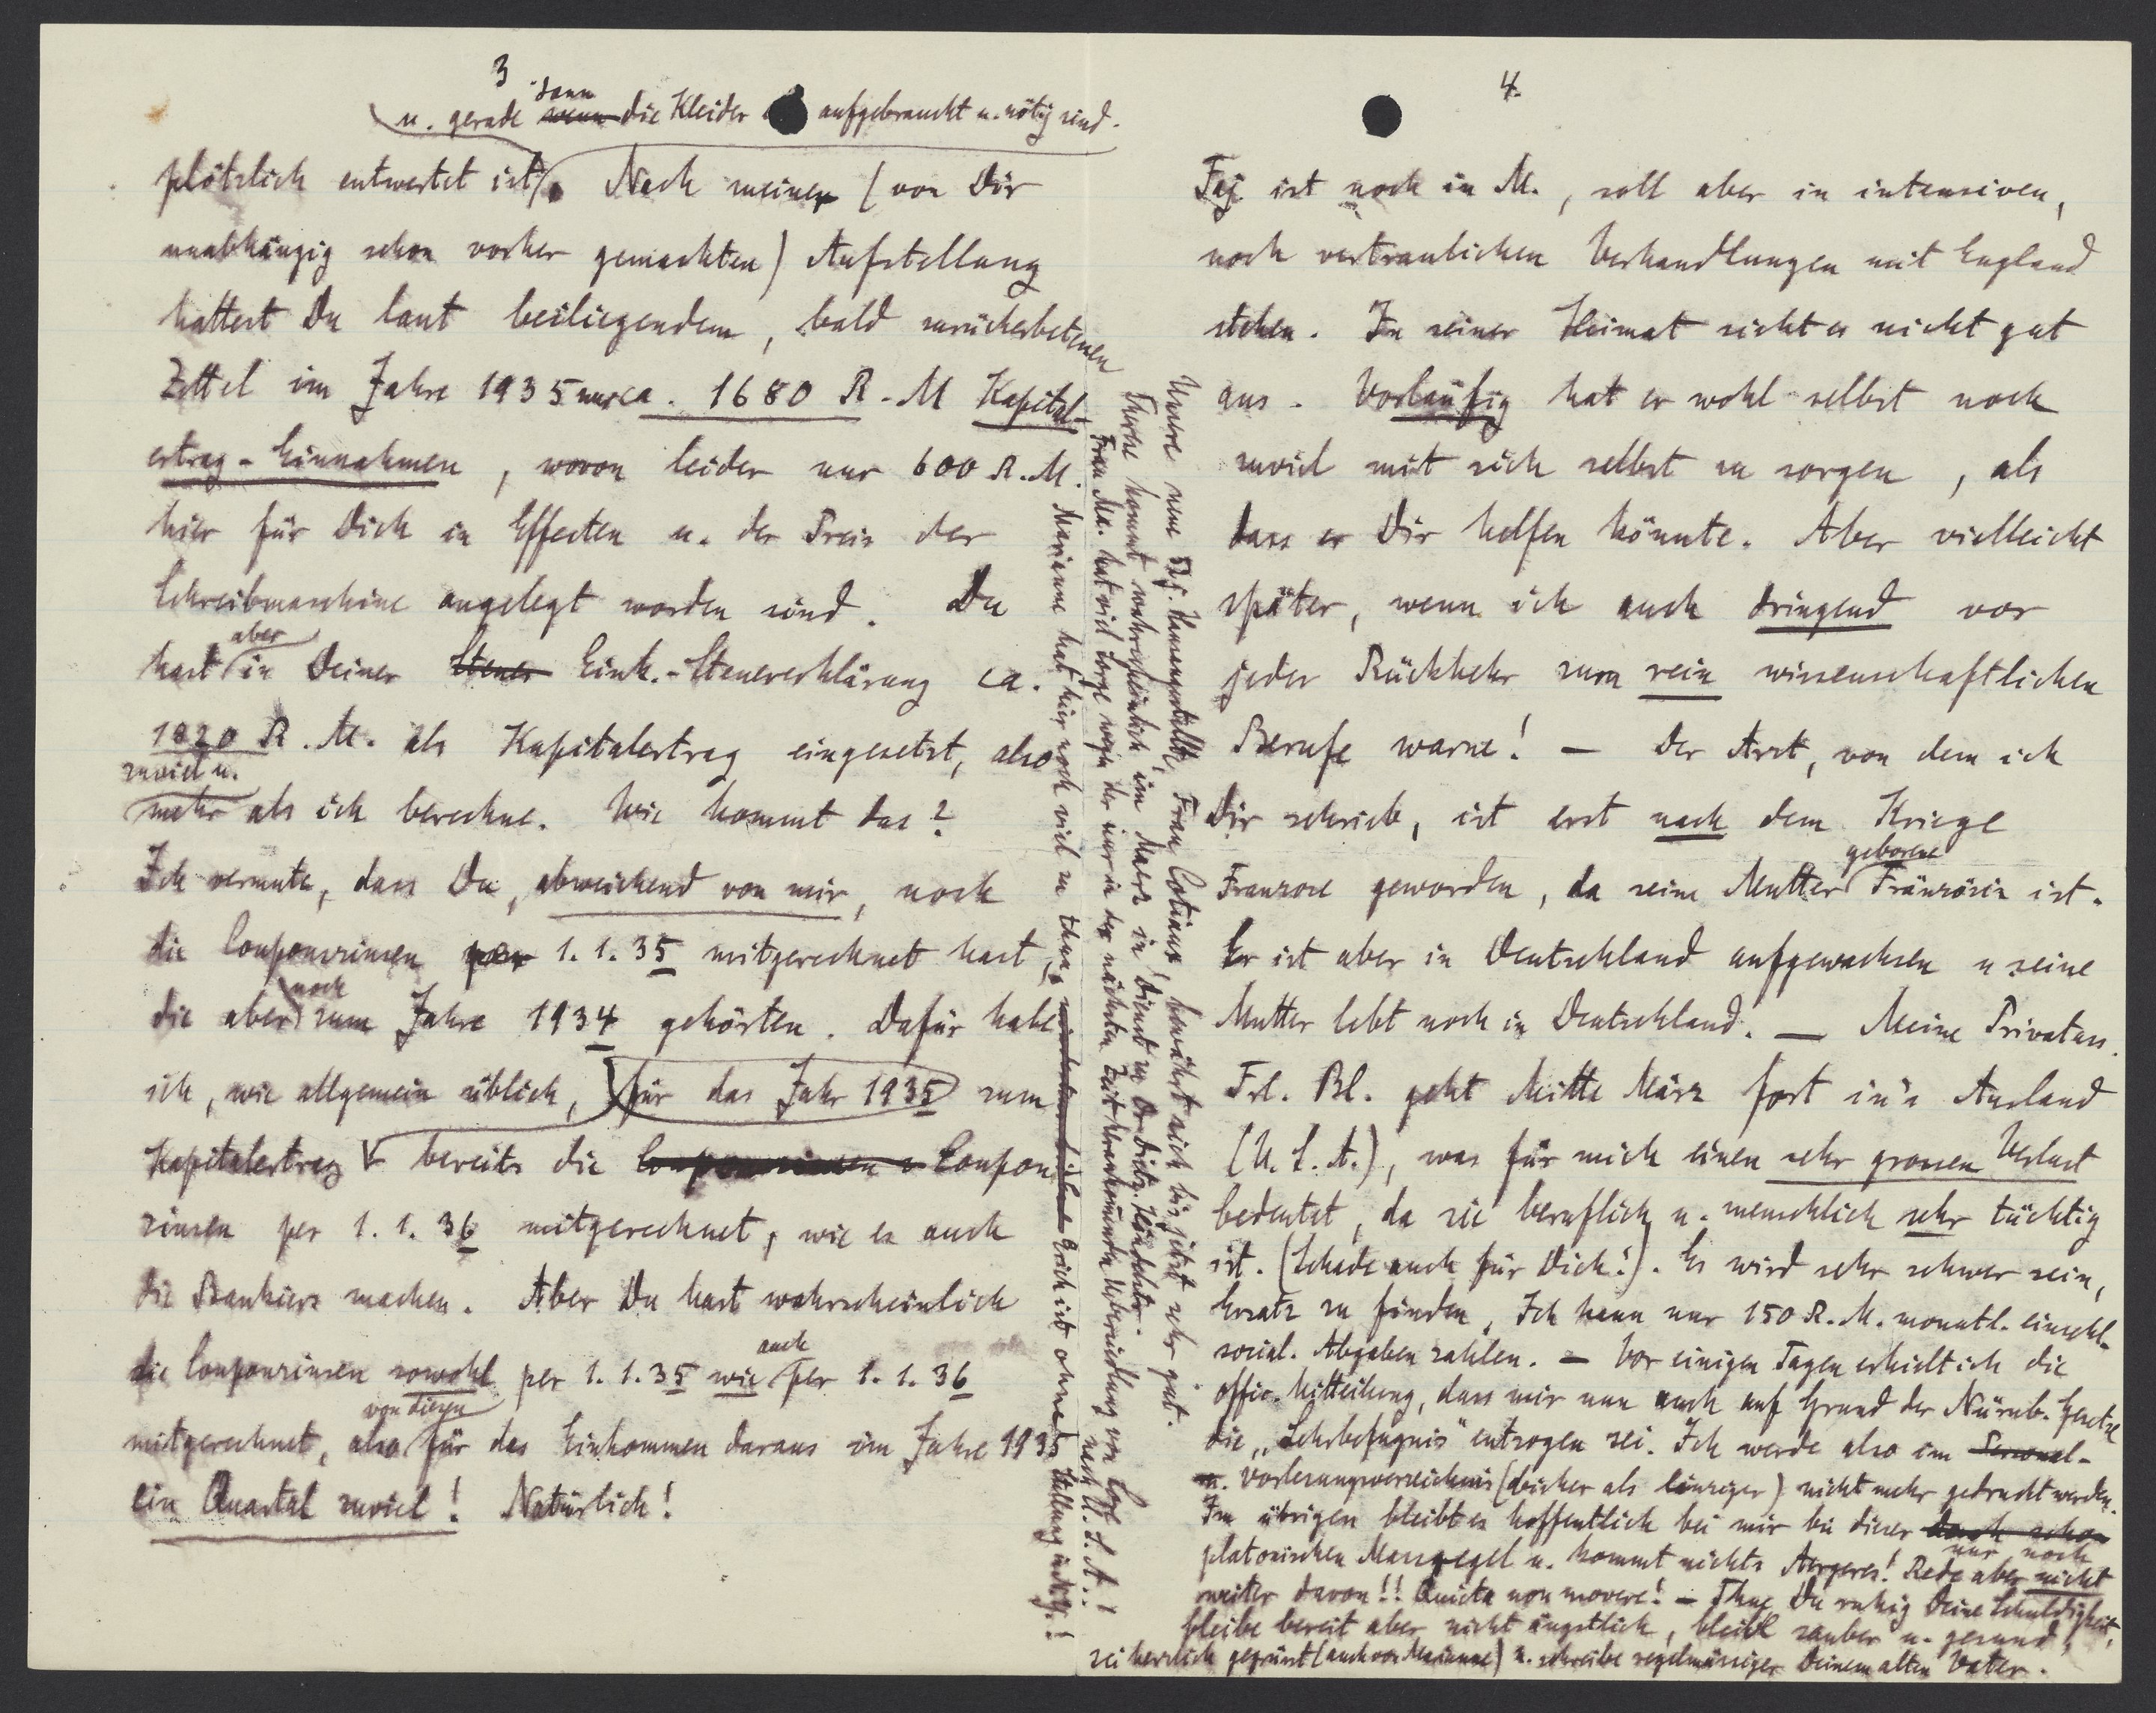 3
u. gerade dann wenn die Kleider aufgebraucht u. nötig sind.
plötzlich entwertet ist. Nach meiner (von Dir
unabhängig schon vorher gemachten) Aufstellung
hattest Du laut beiliegendem, bald zurückerbetenen
Zettel im Jahre 1935 nur ca. 1680 R.-M Kapital-
ertrag-Einnahmen, wovon leider nur 600 R.M.
hier für Dich in Effecten u. der Preis der
Schreibmaschine angelegt worden sind. Du
hast aber in Deiner Steuer Eink.-Steuererklärung ca.
1820 R.M. als Kapitalertrag eingesetzt, also
zuviel u.
mehr als ich berechne. Wie kommt das?
Ich vermute, dass Du, abweichend von mir, noch
die Couponzinsen per 1.1.35 mitgerechnet hast,
die aber noch zum Jahre 1934 gehörten. Dafür habe
ich, wie allgemein üblich, für das Jahr 1935 zum
Kapitalertrag bereits die Couponzinsen Coupon
zinsen per 1.1.36 mitgerechnet, wie es auch
die Bankiers machen. Aber Du hast wahrscheinlich
die Couponzinsen sowohl per 1.1.35 wie auch per 1.1.36
mitgerechnet, also von diesen für das Einkommen daraus im Jahre 1935
ein Quartal zuviel! Natürlich!
Unsere neue 52j. Hausangestellte, Frau, bewährt sich bis jetzt sehr gut.
Therese kommt wahrscheinlich im Maerz in Dienst zu
Frau Ma. hat viel Sorge wegen der nur in der nächsten Zeit herankommenden Uebersiedlung von Carl nach U.S.A.!
Marianne hat hier noch viel zu tun. Erich ist ohne Stellung in N.Y.!
4.
Faj ist noch in M., soll aber in intensiven,
noch vertraulichen Verhandlungen mit England
stehen. In seiner Heimat sieht es nicht gut
aus. Vorläufig hat er wohl selbst noch
zuviel mit sich selbst zu sorgen, als
dass er Dir helfen könnte. Aber vielleicht
später, wenn ich auch dringend vor
jeder Rückkehr zum rein wissenschaftlichen
Berufe warne! — Der Arzt, von dem ich
Dir schrieb, ist erst nach dem Kriege
Franzose geworden, da seine Mutter geborene Französin ist.
Er ist aber in Deutschland aufgewachsen u seine
Mutter lebt noch in Deutschland. — Meine Privatass.
Frl. Bl. geht Mitte März fort in's Ausland
(U.S.A.), was für mich einen sehr grossen Verlust
bedeutet, da sie beruflich u. menschlich sehr tüchtig
ist. (Schade auch für Dich!). Es wird sehr schwer sein,
Ersatz zu finden. Ich kann nur 150 R.M. monatl. einschl.
social. Abgaben zahlen. — Vor einigen Tagen erhielt ich die
offic. Mitteilung, dass mir nun auch auf Grund der Nürnb. Gesetze
die „Lehrbefugnis" entzogen sei. Ich werde also im Personal-
u. Vorlesungsverzeichnis (bisher als einziger) nicht mehr gedruckt werden.
Im übrigen bleibt es hoffentlich bei mir bei dieser doch schon nur noch
platonischen Massregel u. kommt nichts Aergeres! Rede aber nicht
weiter davon!! Quieta non movere! — Thue Du ruhig Deine Schuldigkeit,
bleibe bereit aber nicht ängstlich, bleibe sauber u. gesund,
sei herzlich gegrüsst (auch von Marianne) u. schreibe regelmässiger Deinem alten Vater.